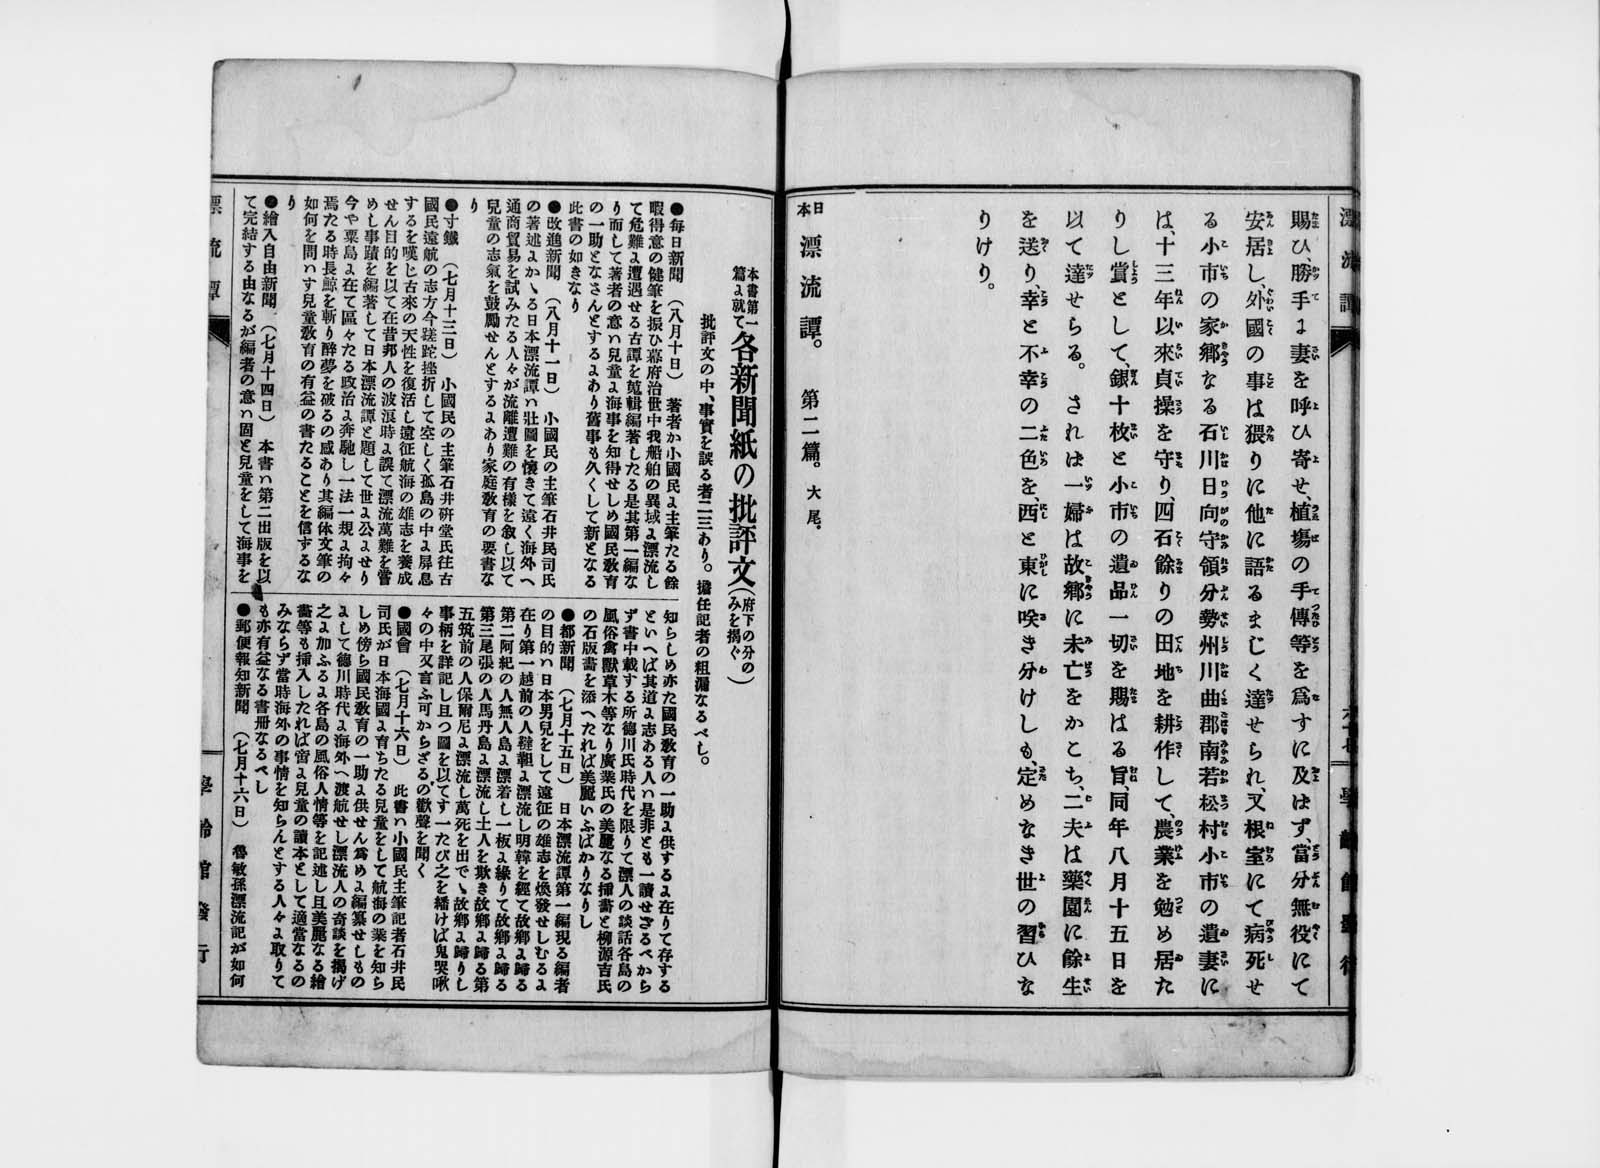 賜ひ、勝手ょ妻を呼ひ寄せ、植塲の手傳等を爲すに及はず、當分無役にて
安居し、外國の事は猥りに他に語るまじく達せられ、又根室にて病死せ
る小市の家鄕なる石川日向守領分勢州川曲郡南若松村小市の遺妻に
は、十三年以來貞操を守り、四石餘りの田地を耕作して、農業を勉め居た
りし賞として、銀十枚と小市の遺品一切を賜はる旨、同年八月十五日を
以て達せらる。されは一婦は故鄕に未亡をかこち、二夫は藥園に餘生
を送り、幸と不幸の二色を、西と東に咲き分けしも、定めなき世の習ひな
りけり。
日本 漂流譚。 第二篇。 大尾。
學齡館發行
本書第一篇ょ就て各新聞紙の批評文(府下の分のみを揭ぐ)
批評文の中、事實を誤る者二三あり。擔任記者の粗漏なるべし。
●每日新聞 (八月十日) 著者か小國民ょ主筆たる餘
暇得意の健筆を振ひ幕府治世中我船舶の異域ょ漂流し
て危難ょ遭遇せる古譚を蒐輯編著したる是其第一編な
り而して著者の意ハ兒童ょ海事を知得せしめ國民敎育
の一助となさんとするょあり舊事も久くして新となる
此書の如きなり
●改進新聞 (八月十一日) 小國民の主筆石井民司氏
の著述ょかゝる日本漂流譚ハ壯圖を懷きて遠く海外へ
通商貿易を試みたる人々が流離遭難の有樣を叙し以て
兒童の志氣を鼓勵せんとするょあり家庭敎育の要書な
り
●寸鐵 (七月十三日) 小國民の主筆石井硏堂氏往古
國民遠航の志方今蹉跎挫折して空しく孤島の中ょ屛息
するを嘆じ古來の天性を復活し遠征航海の雄志を養成
せん目的を以て在昔邦人の波浪時ょ誤て漂流萬難を嘗
めし事蹟を編著して日本漂流譚と題して世ょ公ょせり
今や粟島ょ在て區々たる政治ょ奔馳し一法一規ょ拘々
焉たる時長鯨を斬り醉夢を破るの感あり其編体文筆の
如何を問ハす兒童敎育の有益の書たることを信ずるな
り
●繪入自由新聞 (七月十四日) 本書ハ第二出版を以
て完結する由なるが編者の意ハ固と兒童をして海事を
知らしめ亦た國民敎育の一助ょ供するょ在りて存する
といへば其道ょ志ある人ハ是非とも一讀せざるべから
ず書中載する所德川氏時代を限りて漂人の談話各島の
風俗禽獸草木等なり廣業氏の美麗なる揷畵と柳源吉氏
の石版畵を添へたれば美麗いふばかりなりし
●都新聞 (七月十五日) 日本漂流譚第一編現る編者
の目的ハ日本男兒をして遠征の雄志を煥發せしむるょ
在り第一越前の人韃靼ょ漂流し明韓を經て故鄕ょ歸る
第二阿紀の人無人島ょ漂着し一板ょ緣りて故鄕ょ歸る
第三尾張の人馬丹島ょ漂流し土人を欺き故鄕ょ歸る第
五筑前の人保爾尼ょ漂流し萬死を出でゝ故鄕ょ歸りし
事柄を詳記し且つ圖を以てす一たび之を繙けば鬼哭啾
々の中又言ふ可からざるの歡聲を聞く
●國會 (七月十六日) 此書ハ小國民主筆記者石井民
司氏が日本海國ょ育ちたる兒童をして航海の業を知ら
しめ傍ら國民敎育の一助ょ供せん爲めょ編纂せしもの
ょして德川時代ょ海外へ渡航せし漂流人の奇談を揭げ
之ょ加ふるょ各島の風俗人情等を記述し且美麗なる繪
畵等も揷入したれば啻ょ兒童の讀本として適當なるの
みならず當時海外の事情を知らんとする人々ょ取りて
も亦有益なる書册なるべし
●郵便報知新聞 (七月十六日) 魯敏孫漂流記が如何
漂流譚
學齡館發行